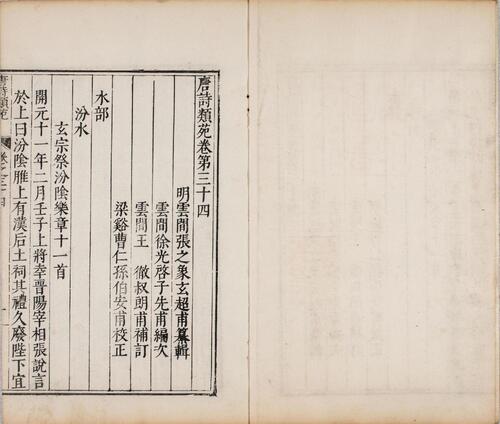 唐詩類苑卷第三十四
明雲間張之象玄超甫纂輯
雲間徐光啓子先甫編次
雲間王徹叔朗甫補訂
梁谿曹仁孫伯安甫校正
水部
汾水
玄宗祭汾陰樂章十一首
開元十一年二月壬子上將幸晉陽宰相張說言
於上曰汾陰脽上有漢后土祠其禮久廢陛下宜
唐詩類苑